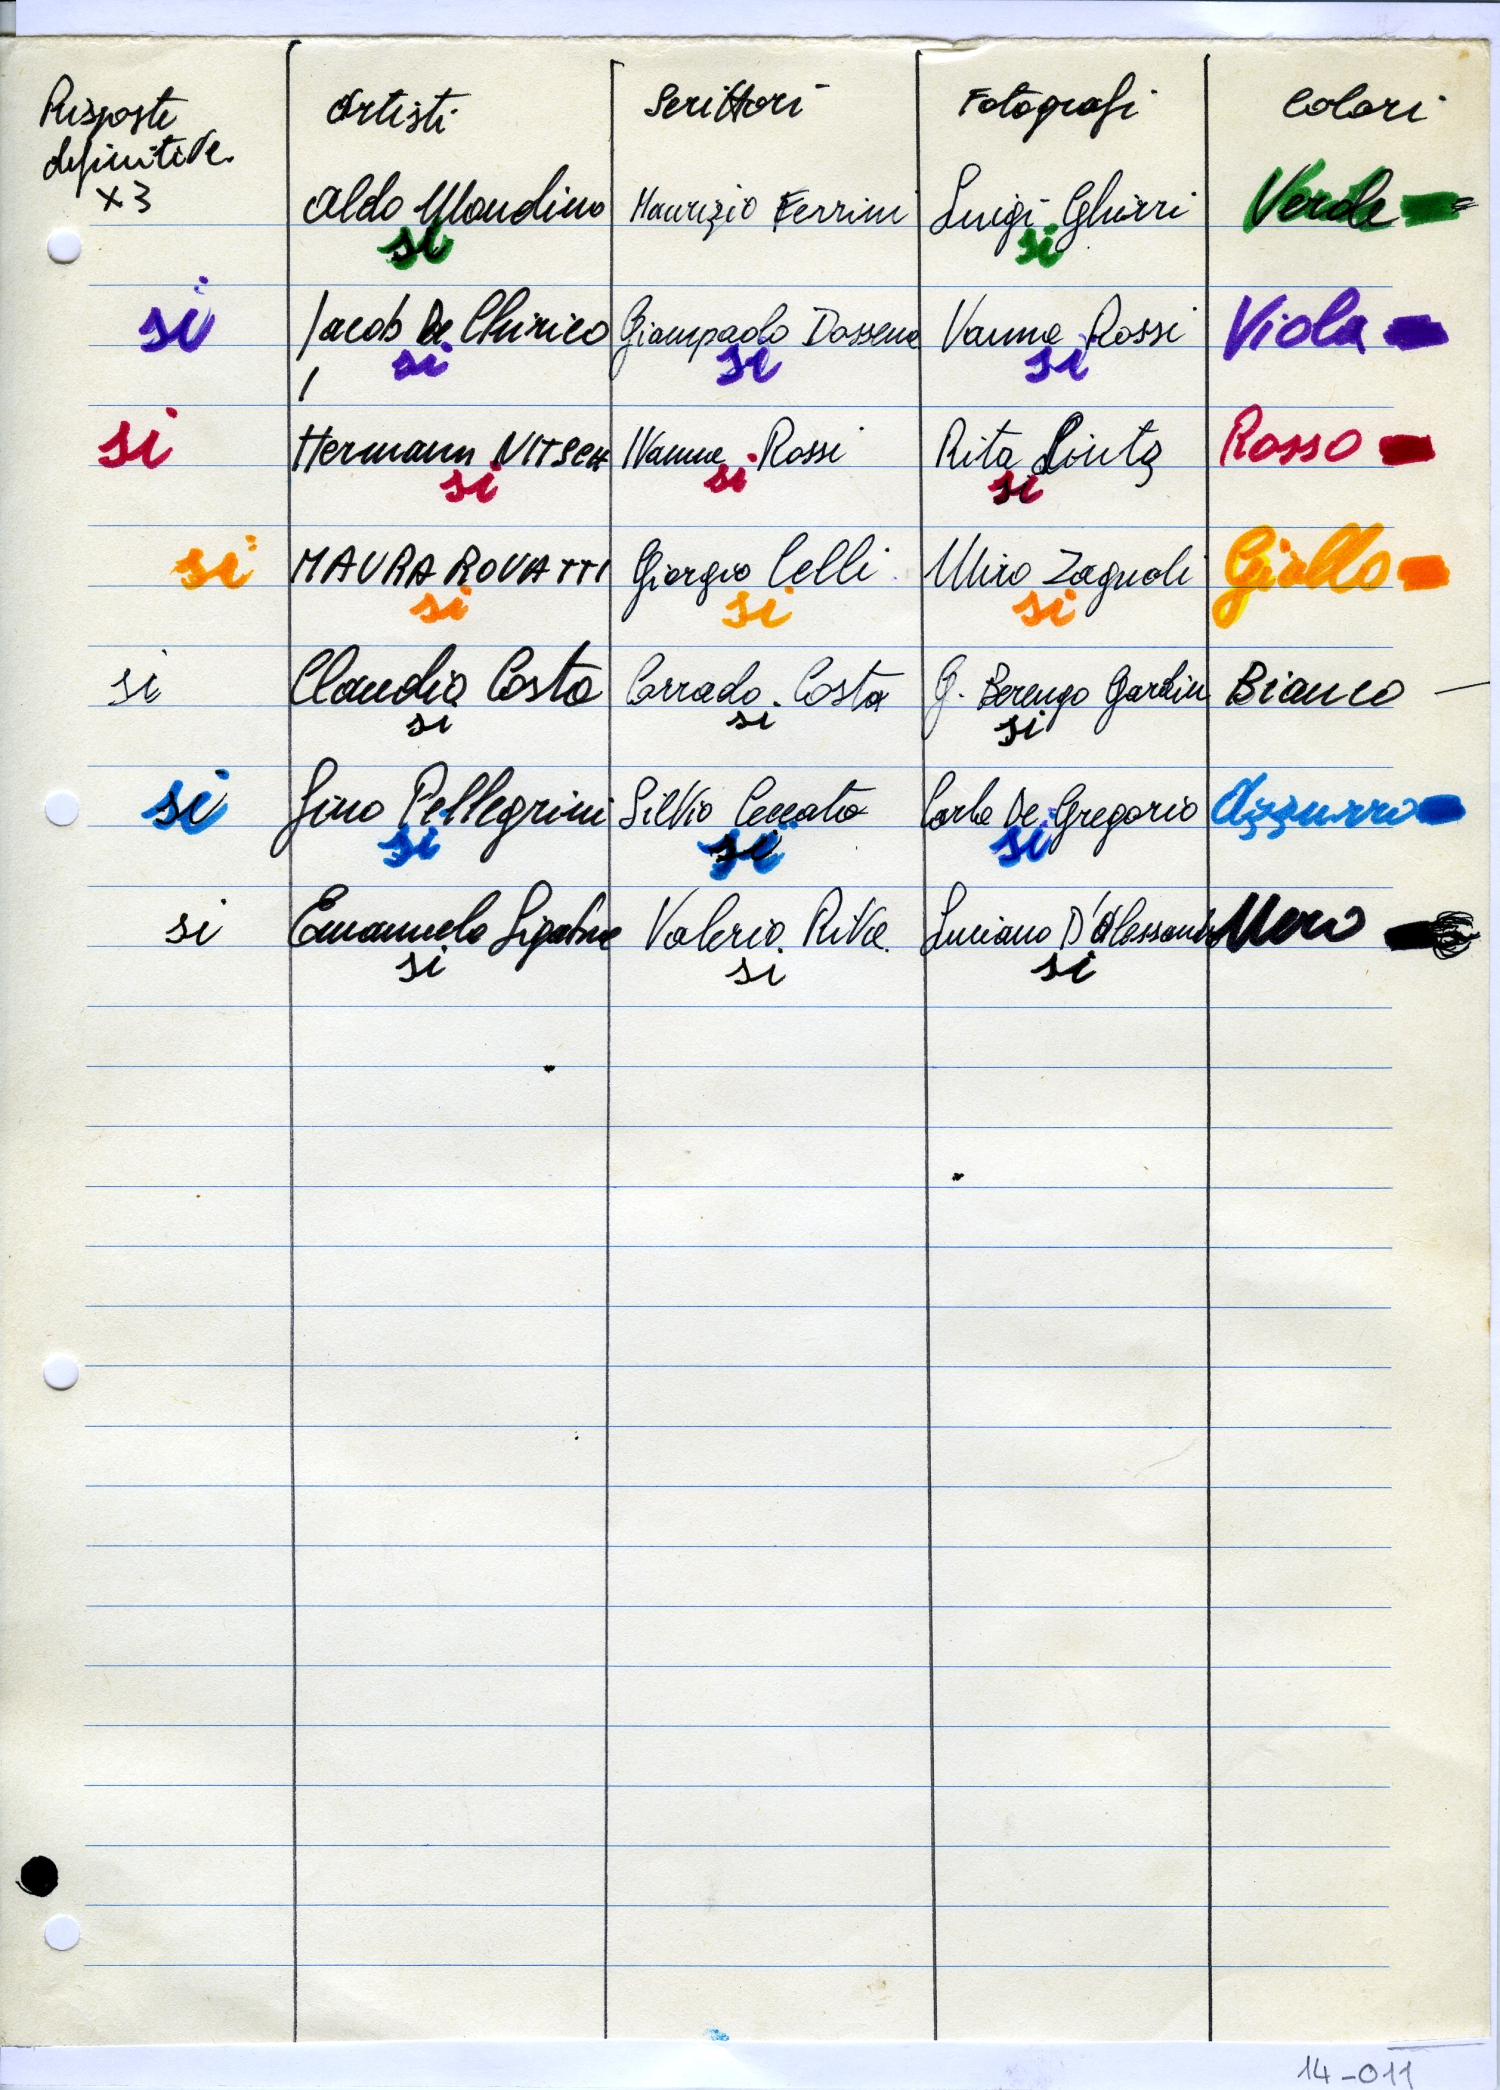 Risposte Artisti Scrittori Fotografi Colori
definitive
x3 Aldo Mondino Maurizio Ferrini Luigi Ghirri Verde
si si
si Jacob De Chirico Giampaolo Dossena Vanna Rossi Viola
si si si
si Hermann NITSCH Vanna Rossi Rita Lintz Rosso
si si si
si MAURA ROVATTI Giorgio Celli Miro Zagnoli Giallo
si si si
si Claudio Costa Corrado Costa G. Berengo Gardin Bianco
si si si
si Gino Pellegrini Silvio Ceccato Carla De Gregorio Azzurro
si si si
si Emanuela Ligabue Valerio Riva Luciano D'Alessandro Nero
si si si
14-011